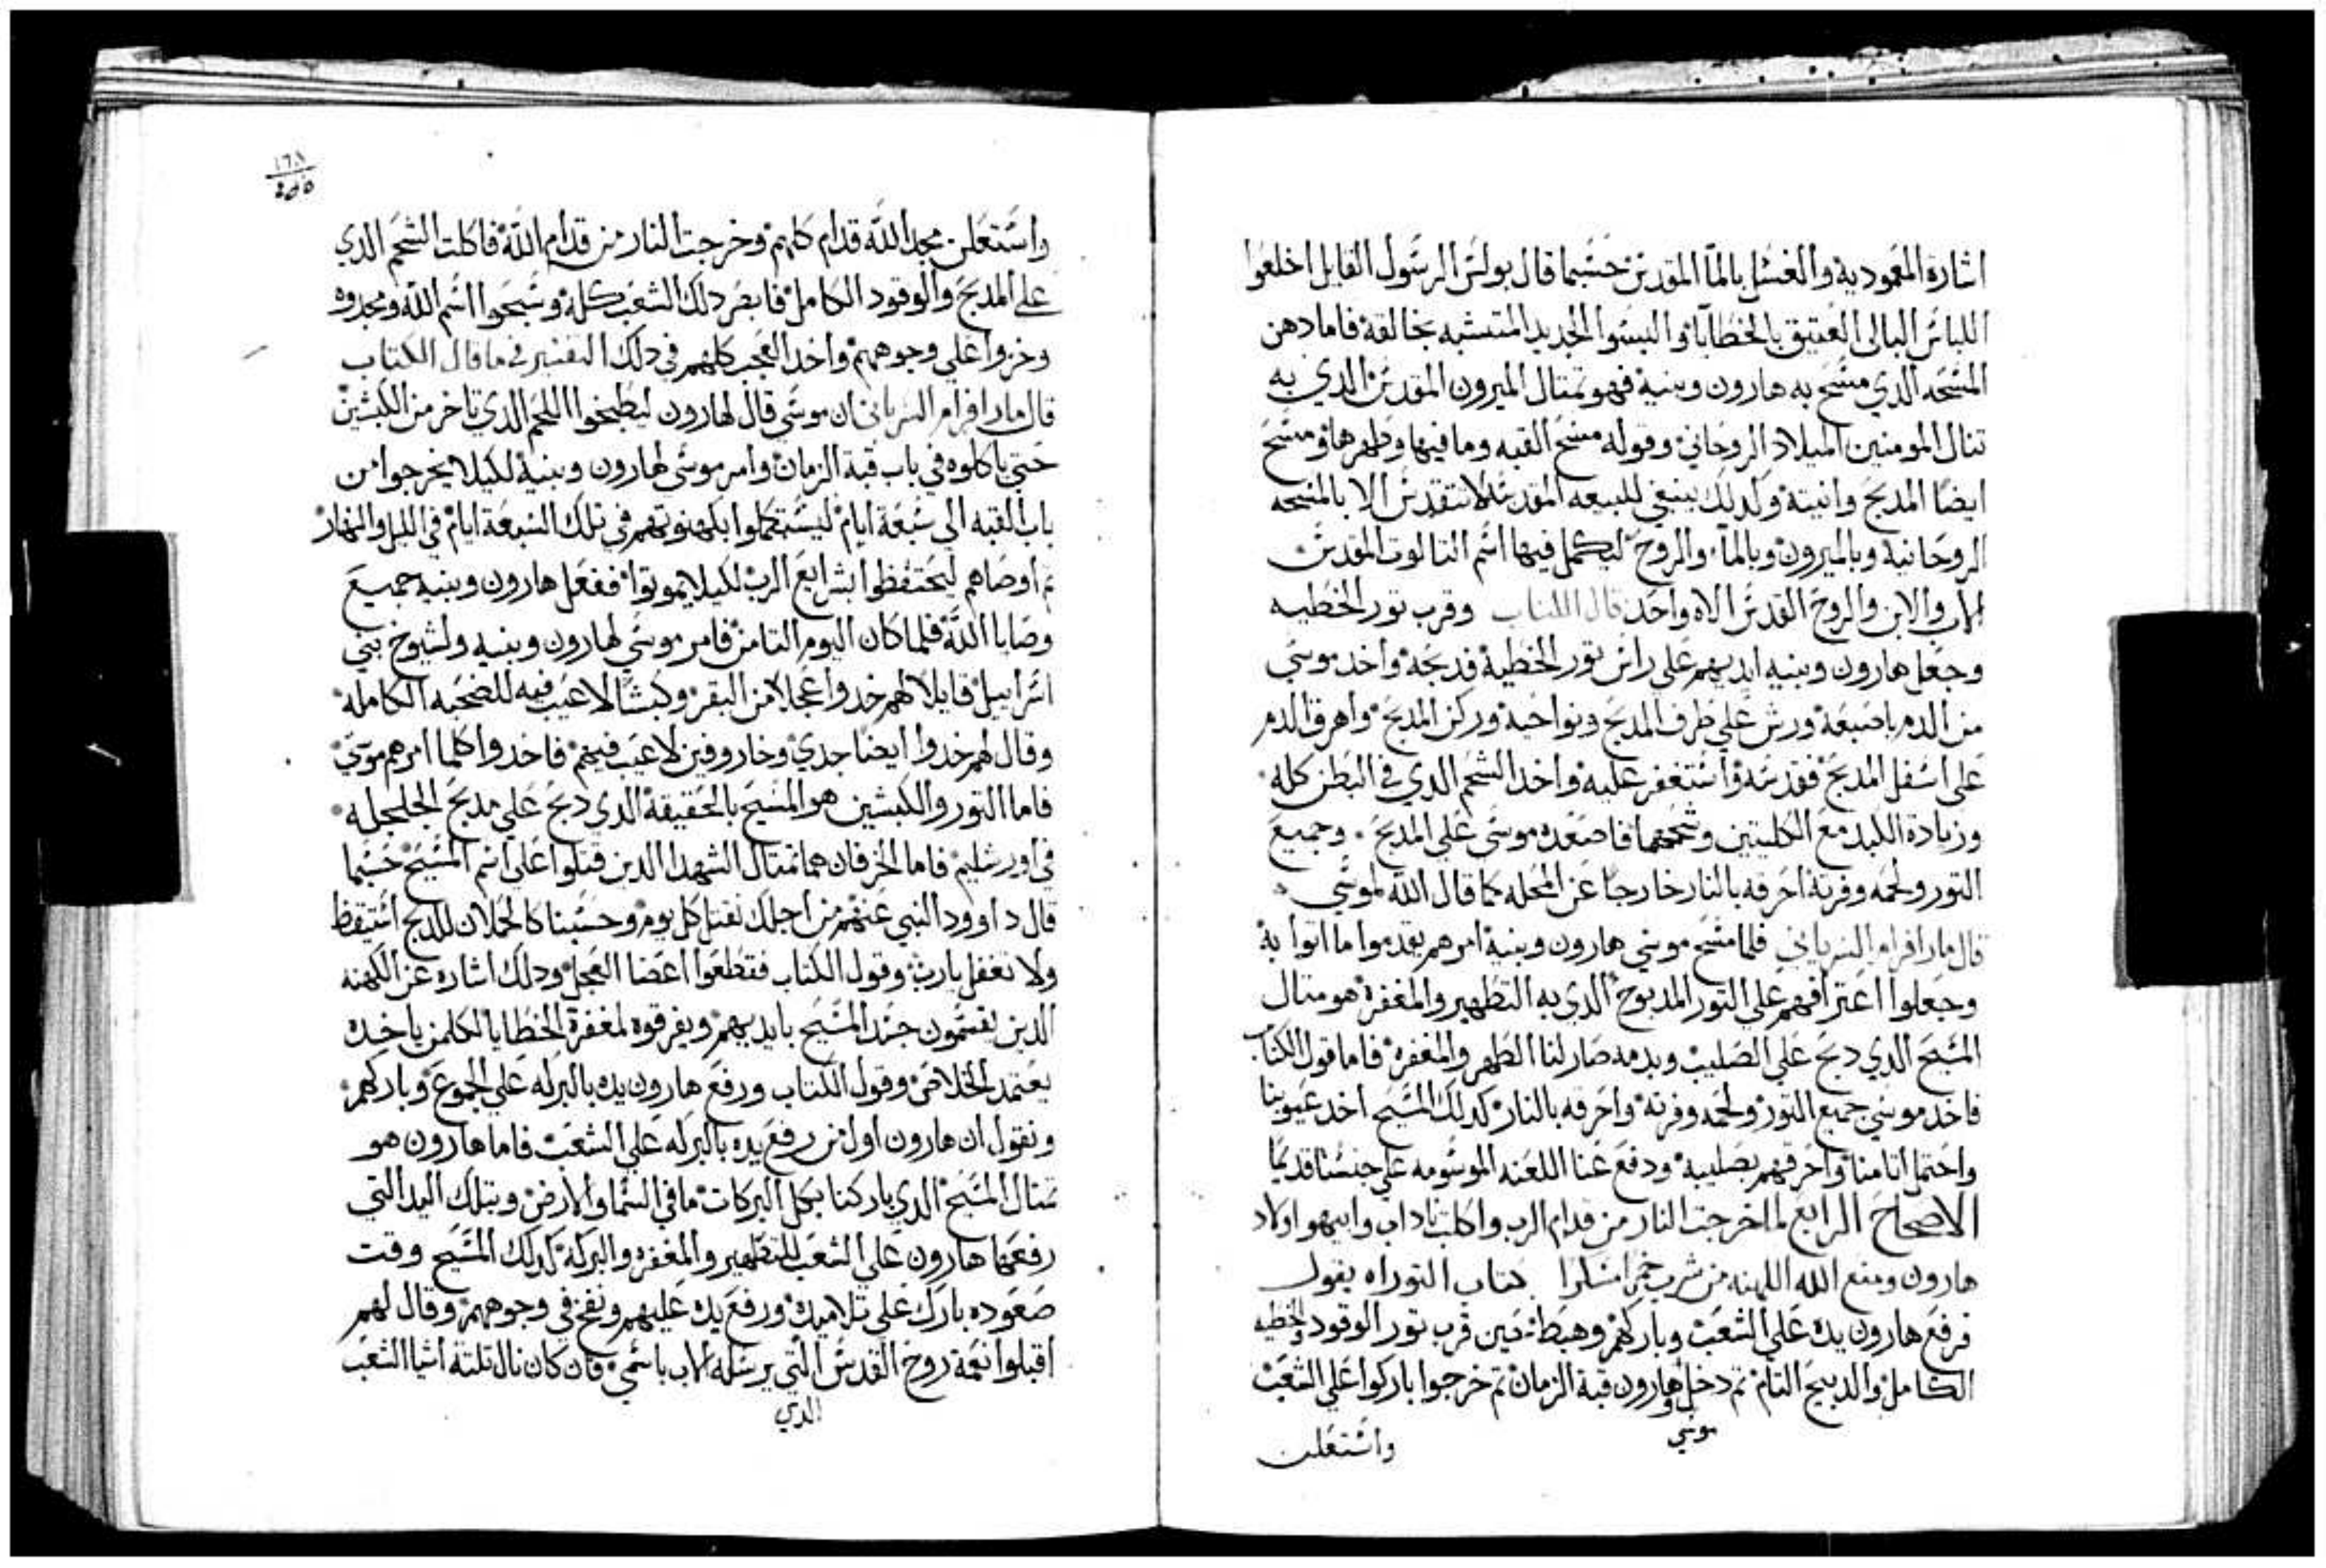 اشارة المعمودية والغسل بالمآ المقدس حسبما قال بولس الرسول القايل اخلعوا
اللباس البالى العتيق بالخطايا والبسوا الجديد المتشبه بخالقة فاما دهن
المسحه الدي مسح به هارون وبنية فهو تمتال الميرون المقدس الدي به
تنال المومنين الميلاد الروحاني وقوله مسح القبه وما فيها وطهرها ومسح
ايضا المدبح وانيتة وكدلك ينبغي للبيعه المقدسه لا تتقدس الا بالمسحه
الروحانية وبالميرون وبالمآ والروح ليكمل فيها اسم التالوت المقدس
الاب والابن والروح القدس الاه واحد قال الكتاب وقرب تور الخطيه
وجعل هارون وبنيه ايديهم على راس تور الخطية فدبحه واخد موسي
من الدم باصبعة ورش علي طرف المدبح ونواحية وركن المدبح واهرق الدم
على اسفل المدبح فقدسه واستغفر عليه واخد الشحم الدي في البطن كله
وزيادة الكبد مع الكليتين وشحمهما فاصعده موسى على المدبح وجميع
التور ولحمه وفرتة احرقه بالنار خارجا عن المحله كما قال الله لموسي
قال مار افرام السرياني فلما مسح موسي هارون وبنية امرهم يقدموا ما اتوا بة
وجعلوا اعترافهم على التور المدبوح الدي به التطهير والمغفرة هو متال
المسيح الدي دبح على الصليب وبدمه صار لنا الطهر والمغفرة فاما قول الكتاب
فاخد موسي جميع التور ولحمه وفرتة واحرقه بالنار كدلك المسيح اخد عيوبنا
واحتمل اتامنا واحرقهم بصليبه ودفع عنا اللعنه الموسومه علي جنسنا قديما
الاصحاح الرابع لما خرجت النار من قدام الرب واكلت ناداب وابيهو اولاد
هارون ومنع الله الكهنه من شرب خمرا مسكرا كتاب التوراه يقول
فرفع هارون يده على الشعب وباركهم وهبط حين قرب تور الوقود والخطيه
الكامل والدبيح التام تم دخل هارون قبة الزمان تم خرجوا باركوا على الشعب
موسي و
واستعلن
١٦٨
واستعلن مجد الله قدام كلهم وخرجت النار من قدام الله فاكلت الشحم الدي
على المدبح والوقود الكامل فابصر دلك الشعب كله وسبحوا اسم الله ومجدوه
وخروا علي وجوههم واخد العجب كلهم في دلك التفسير في ما قال الكتاب
قال مار افرام السرياني ان موسي قال لهارون ليطبخوا اللحم الدي تاخر من الكبشين
حتي ياكلوه في باب قبة الزمان وامر موسى لهارون وبنية لكيلا يخرجوا من
باب القبه الى سبعة ايام ليستكملوا بكهنوتهم في تلك السبعة ايام في الليل والنهار
تم اوصاهم ليحتفظوا بشرايع الرب لكيلا يموتوا ففعل هارون وبنيه جميع
وصايا الله فلما كان اليوم التامن فامر موسي لهارون وبنيه ولشيوخ بني
اسراييل قايلا لهم خدوا عجلا من البقر وكبشا لا عيب فيه للضحيه الكاملة
وقال لهم خدوا ايضا جدي وخاروفين لا عيب فيهم فاخدوا كلما امرهم موسي
فاما التور والكبشين هو المسيح بالحقيقة الدي دبح علي مدبح الجلجله
في اورشليم فاما الخرفان هما تمتال الشهدا الدين قتلوا على اسم المسيح حسبما
قال داوود النبي عنهم من اجلك نقتل كل يوم وحسبنا كالحملان للدبح استيقظ
ولا تغفل يارب وقول الكتاب فقطعوا اعضا العجل ودلك اشاره عن الكهنه
الدين يقسمون جسد المسيح بايديهم ويفرقوه لمغفرة الخطايا لكلمن ياخده
يعتمد الخلاص وقول الكتاب ورفع هارون يده بالبركه على الجموع وباركهم
ونقول ان هارون اول من رفع يده بالبركه علي الشعب فاما هارون هو
متال المسيح الدي باركنا بكل البركات ما في السما والارض وبتلك اليد التي
رفعها هارون علي الشعب للتطهير والمغفره والبركة كدلك المسيح وقت
صعوده بارك علي تلاميده ورفع يده عليهم ونفخ في وجوههم وقال لهم
اقبلوا نعمة روح القدس التي يرسله الاب باسمي فان كان نال تلتة اشيا الشعب
الدي